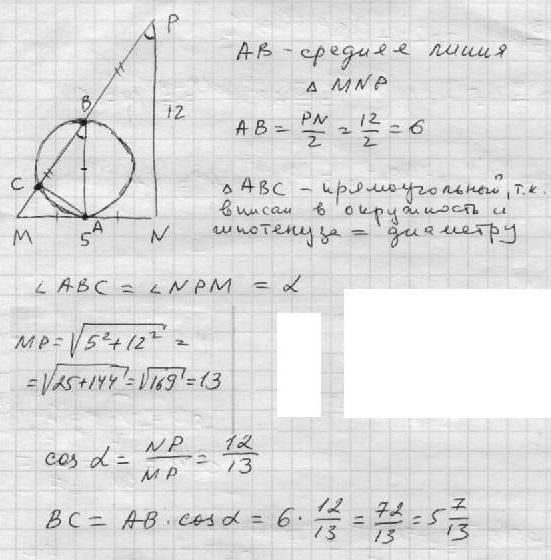 P
B
12
C
M
5
A
N
AB - средняя линия
△ MNP
AB = PN/2 = 12/2 = 6
△ ABC - прямоугольный, т.к.
вписан в окружность и
гипотенуза = диаметру
∠ ABC = ∠ NPM = α
MP = √(5² + 12²) =
= √(25 + 144) = √169 = 13
cos α = NP/MP = 12/13
BC = AB · cos α = 6 · 12/13 = 72/13 = 5 7/13